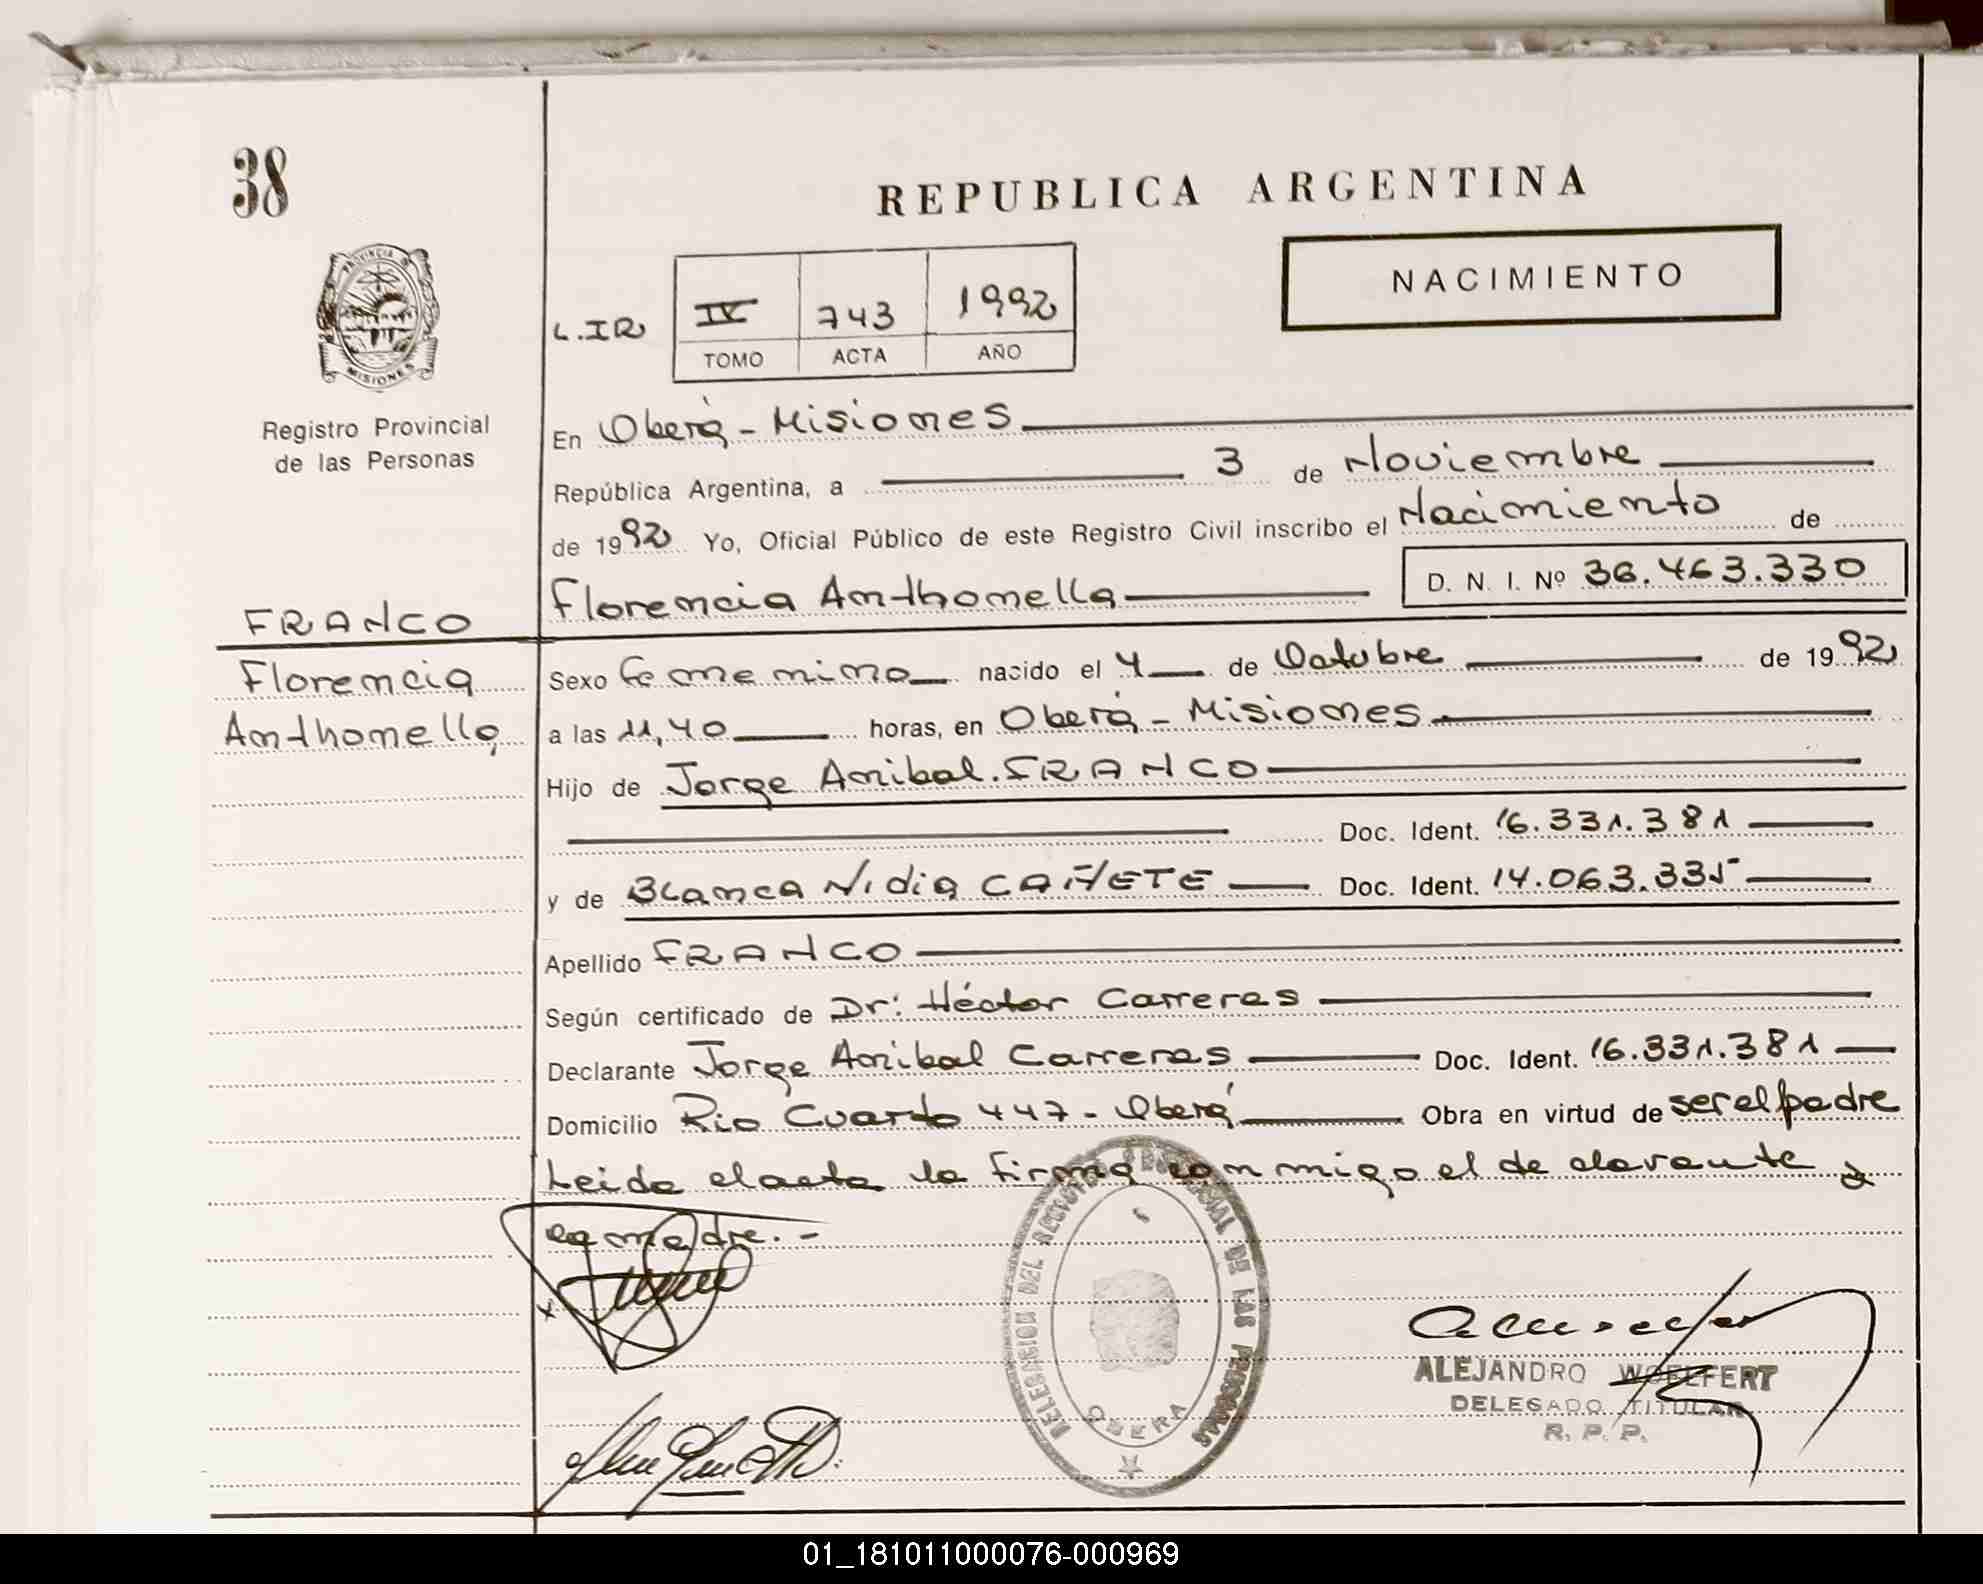 38
REPUBLICA ARGENTINA
NACIMIENTO
PROVINCIA D
MISIONES
Registro Provincial
de las Personas
L.IR IV 743 1992
TOMO ACTA AÑO
En Oberá - Misiones
República Argentina, a 3 de Noviembre
de 1992 Yo, Oficial Público de este Registro Civil inscribo el Nacimiento de
Florencia Anthonella D. N. I. Nº 36.463.330
FRANCO
Florencia
Anthonella
Sexo Femenino nacido el 4 de Octubre de 1992
a las 11,40 horas, en Oberá - Misiones
Hijo de Jorge Anibal. FRANCO
Doc. Ident. 16.331.381
y de Blanca Nidia CAÑETE Doc. Ident. 14.063.335
Apellido FRANCO
Según certificado de Dr: Héctor Carreras
Declarante Jorge Anibal Carreras Doc. Ident. 16.331.381
Domicilio Rio Cuarto 447 - Oberá Obra en virtud de ser el padre
Leida el acta la firma conmigo el declarante y
la madre. -
DELEGACION DEL REGISTRO PROVINCIAL DE LAS PERSONAS
OBERA
ALEJANDRO WOELFERT
DELEGADO TITULAR
R. P. P.
01_181011000076-000969